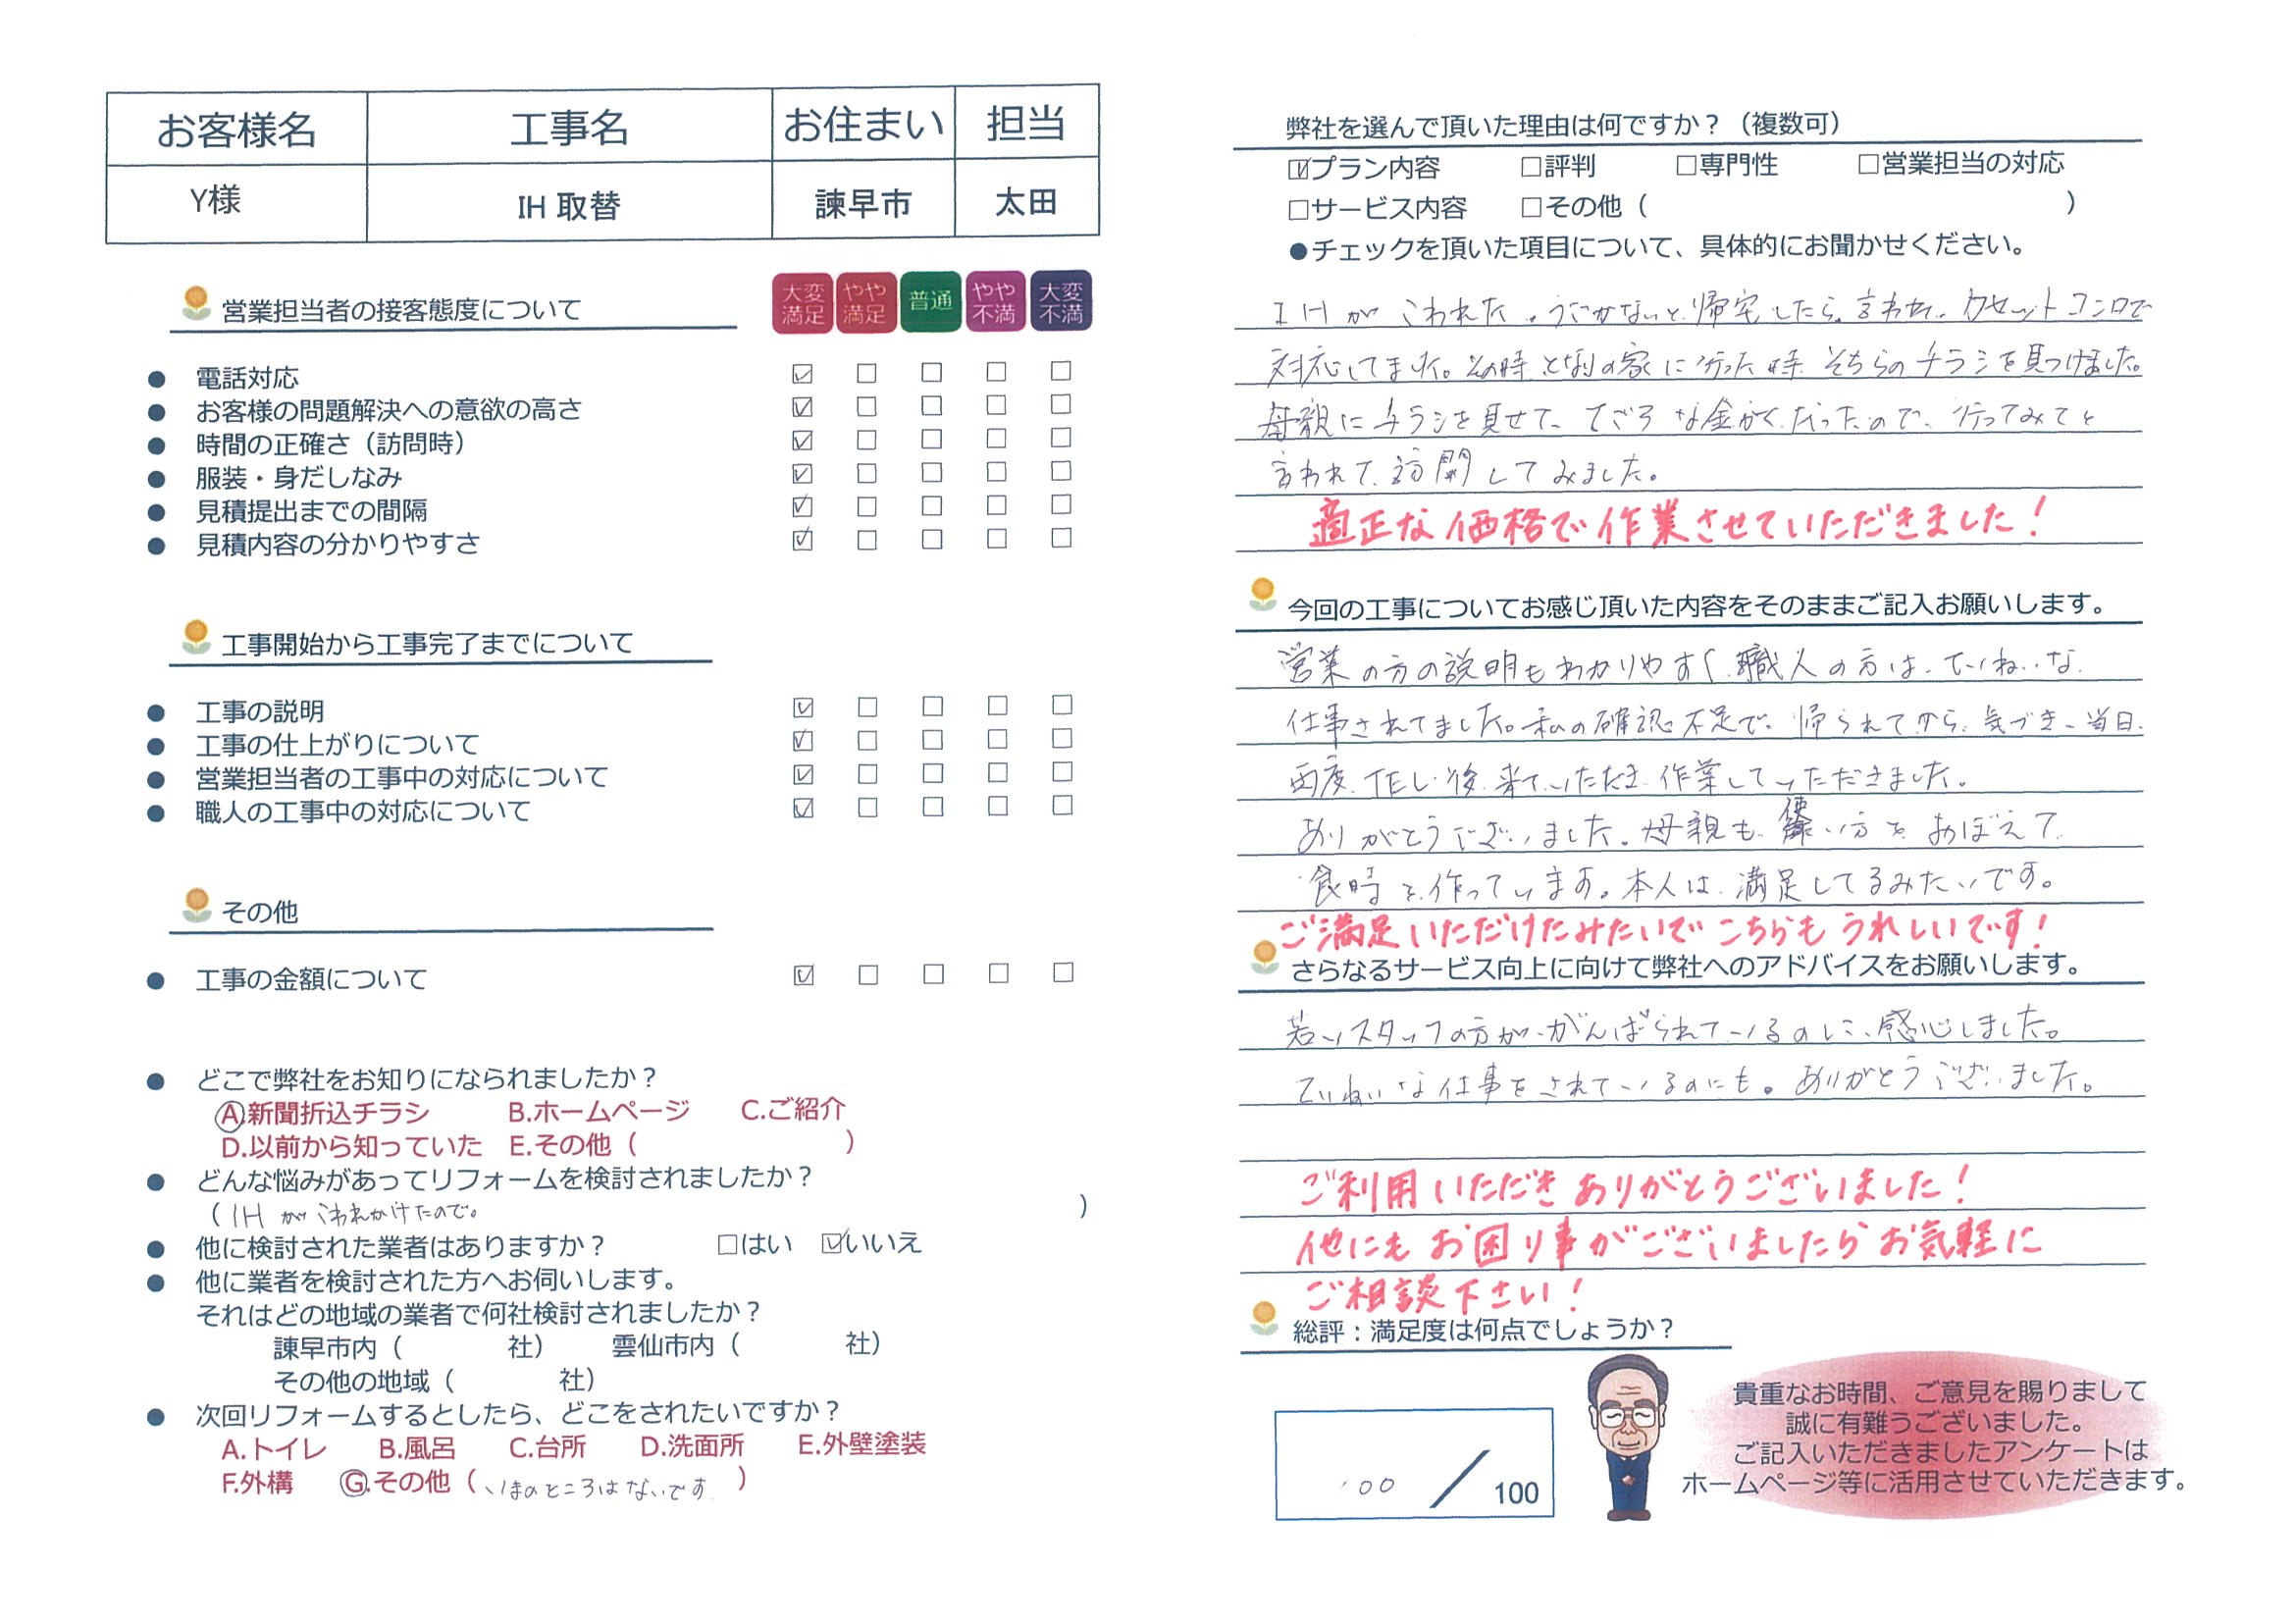 お客様名 工事名 お住まい 担当
Y様 IH 取替 諫早市 太田
営業担当者の接客態度について 大変満足 やや満足 普通 やや不満 大変不満
● 電話対応 ☑ □ □ □ □
● お客様の問題解決への意欲の高さ ☑ □ □ □ □
● 時間の正確さ（訪問時） ☑ □ □ □ □
● 服装・身だしなみ ☑ □ □ □ □
● 見積提出までの間隔 ☑ □ □ □ □
● 見積内容の分かりやすさ ☑ □ □ □ □
工事開始から工事完了までについて
● 工事の説明 ☑ □ □ □ □
● 工事の仕上がりについて ☑ □ □ □ □
● 営業担当者の工事中の対応について ☑ □ □ □ □
● 職人の工事中の対応について ☑ □ □ □ □
その他
● 工事の金額について ☑ □ □ □ □
● どこで弊社をお知りになられましたか？
A.新聞折込チラシ B.ホームページ C.ご紹介
D.以前から知っていた E.その他（ ）
● どんな悩みがあってリフォームを検討されましたか？
（IHがこわれかけたので。 ）
● 他に検討された業者はありますか？ □はい ☑いいえ
● 他に業者を検討された方へお伺いします。
それはどの地域の業者で何社検討されましたか？
諫早市内（ 社） 雲仙市内（ 社）
その他の地域（ 社）
● 次回リフォームするとしたら、どこをされたいですか？
A.トイレ B.風呂 C.台所 D.洗面所 E.外壁塗装
F.外構 G.その他（いまのところはないです ）
弊社を選んで頂いた理由は何ですか？（複数可）
☑プラン内容 □評判 □専門性 □営業担当の対応
□サービス内容 □その他（ ）
●チェックを頂いた項目について、具体的にお聞かせください。
IHがこわれた。うごかないと帰宅したら言われ、カセットコンロで
対応してました。その時となりの家に行った時そちらのチラシを見つけました。
母親にチラシを見せて、てごろな金がくだったので、行ってみてと
言われて訪問してみました。
適正な価格で作業させていただきました！
今回の工事についてお感じ頂いた内容をそのままご記入お願いします。
営業の方の説明もわかりやすく職人の方は、ていねいな
仕事されてました。私の確認不足で。帰られてから気づき、当日
再度 後来ていただき作業していただきました。
ありがとうございました。母親も使い方をおぼえて
食時を作っています。本人は満足してるみたいです。
ご満足いただけたみたいでこちらもうれしいです！
さらなるサービス向上に向けて弊社へのアドバイスをお願いします。
若いスタッフの方ががんばられているのに、感心しました。
ていねいな仕事をされているのにも。ありがとうございました。
ご利用いただきありがとうございました！
他にもお困り事がございましたらお気軽に
ご相談下さい！
総評：満足度は何点でしょうか？
100 / 100
貴重なお時間、ご意見を賜りまして
誠に有難うございました。
ご記入いただきましたアンケートは
ホームページ等に活用させていただきます。